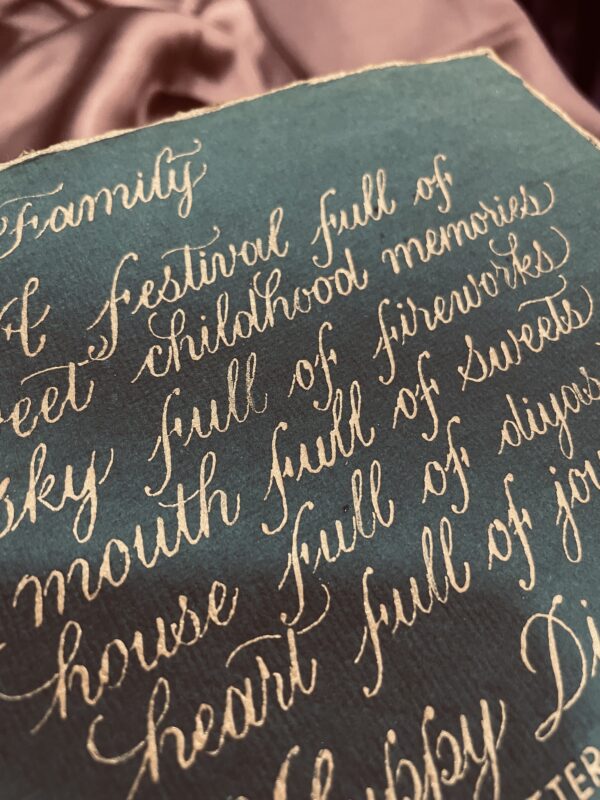 Family
A festival full of
eet childhood memories
sky full of fireworks
mouth full of sweets
house full of diyas
heart full of jo
Happy Di
TTER